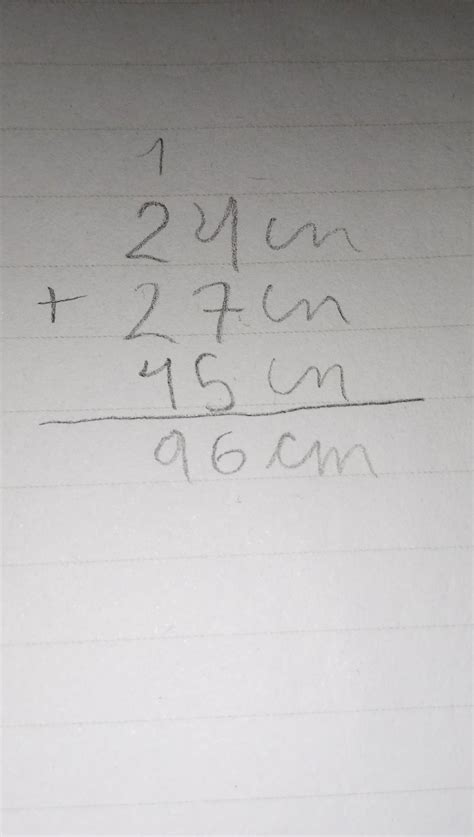 1
24cm
+ 27cm
45cm
96cm